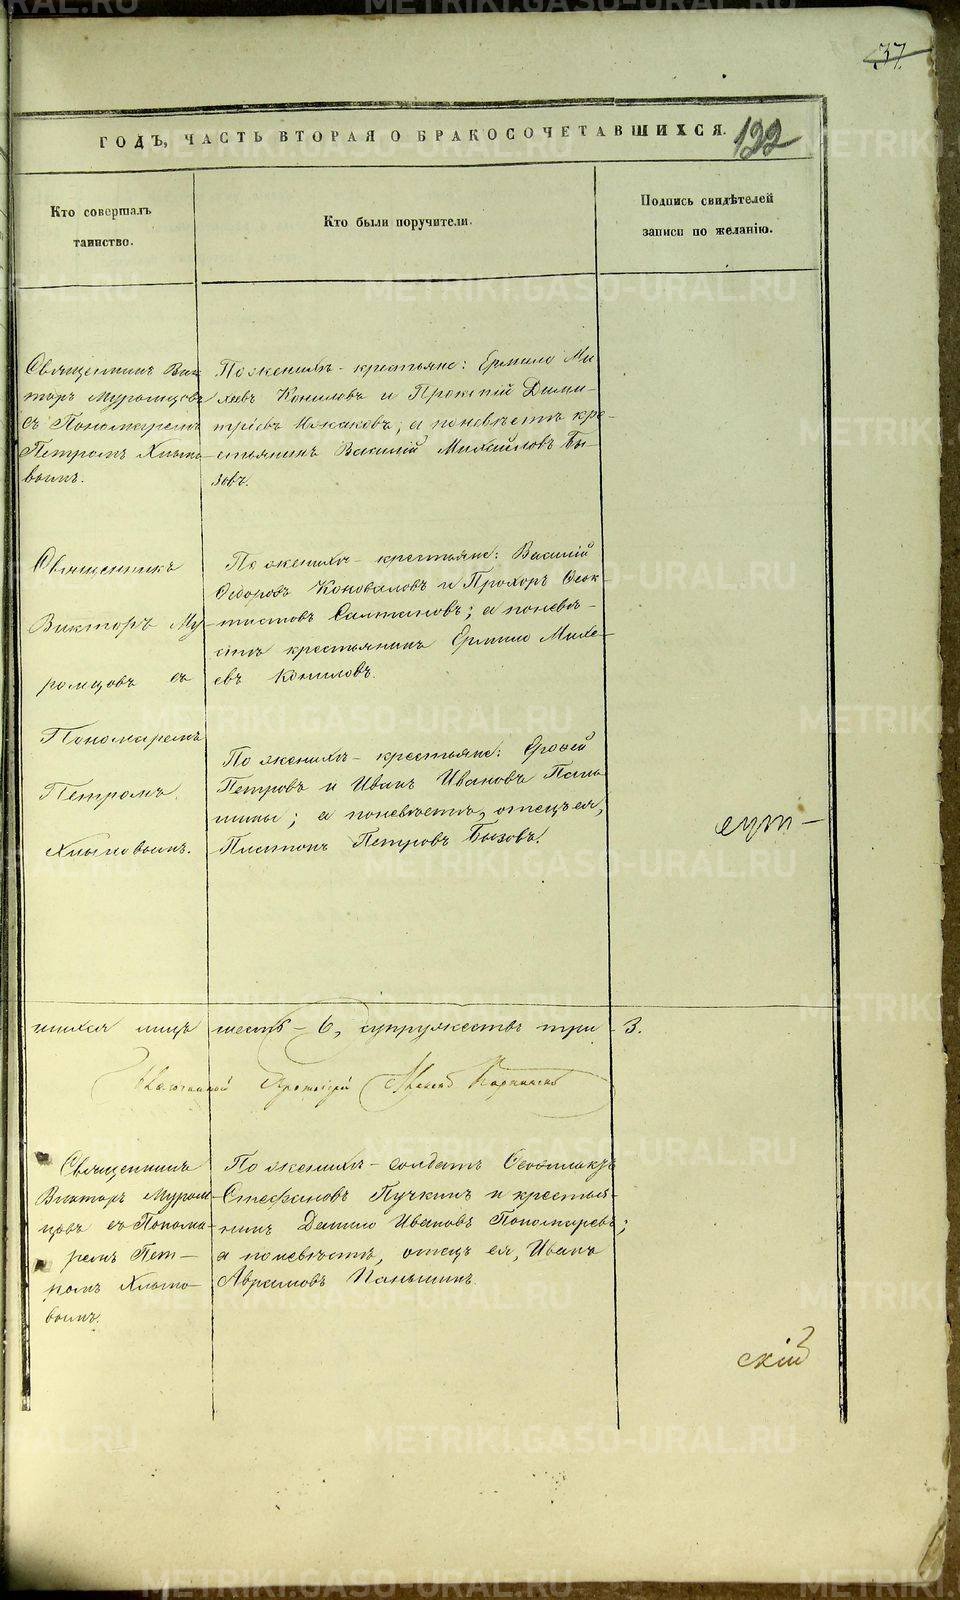 37
ГОДЪ, ЧАСТЬ ВТОРАЯ О БРАКОСОЧЕТАВШИХСЯ.
122
Кто совершалъ
таинство.
Кто были поручители.
Подпись свидѣтелей
записи по желанію.
Священникъ Вик
торъ Муромцовъ
съ Пономаремъ
Петромъ Хлыно
вымъ.
По женихѣ - крестьяне: Ермило Ми
хеевъ Копиловъ и Прокопій Дими-
тріевъ ; а по невѣстѣ кре-
стьянинъ Василій Михайловъ Бы
зовъ.
Священникъ
Викторъ Му-
ромцовъ съ
Пономаремъ
Петромъ
Хлыновымъ.
По женихѣ - крестьяне: Василій
Ѳедоровъ Коноваловъ и Прохоръ Ѳеок
тистовъ Салтановъ; а по невѣ-
стѣ крестьянинъ Ермило Михе-
евъ Копиловъ.
По женихѣ - крестьяне: Ерофей
Петровъ и Иванъ Ивановъ Пань
шины; а по невѣстѣ, отецъ ея,
Платонъ Петровъ Бызовъ.
шихся лицъ шесть - 6, супружествъ три 3.
Протоіерей
Священникъ
Викторъ Муром-
цовъ съ Понома-
ремъ Пет-
ромъ Хлыно-
вымъ.
По женихѣ - солдатъ Ѳеофилактъ
Стефановъ Пучкинъ и крестья-
нинъ Данило Ивановъ Пономаревъ;
а по невѣстѣ, отецъ ея, Иванъ
Аврамовъ Паньшинъ.
скій
METRIKI.GASO-URAL.RU